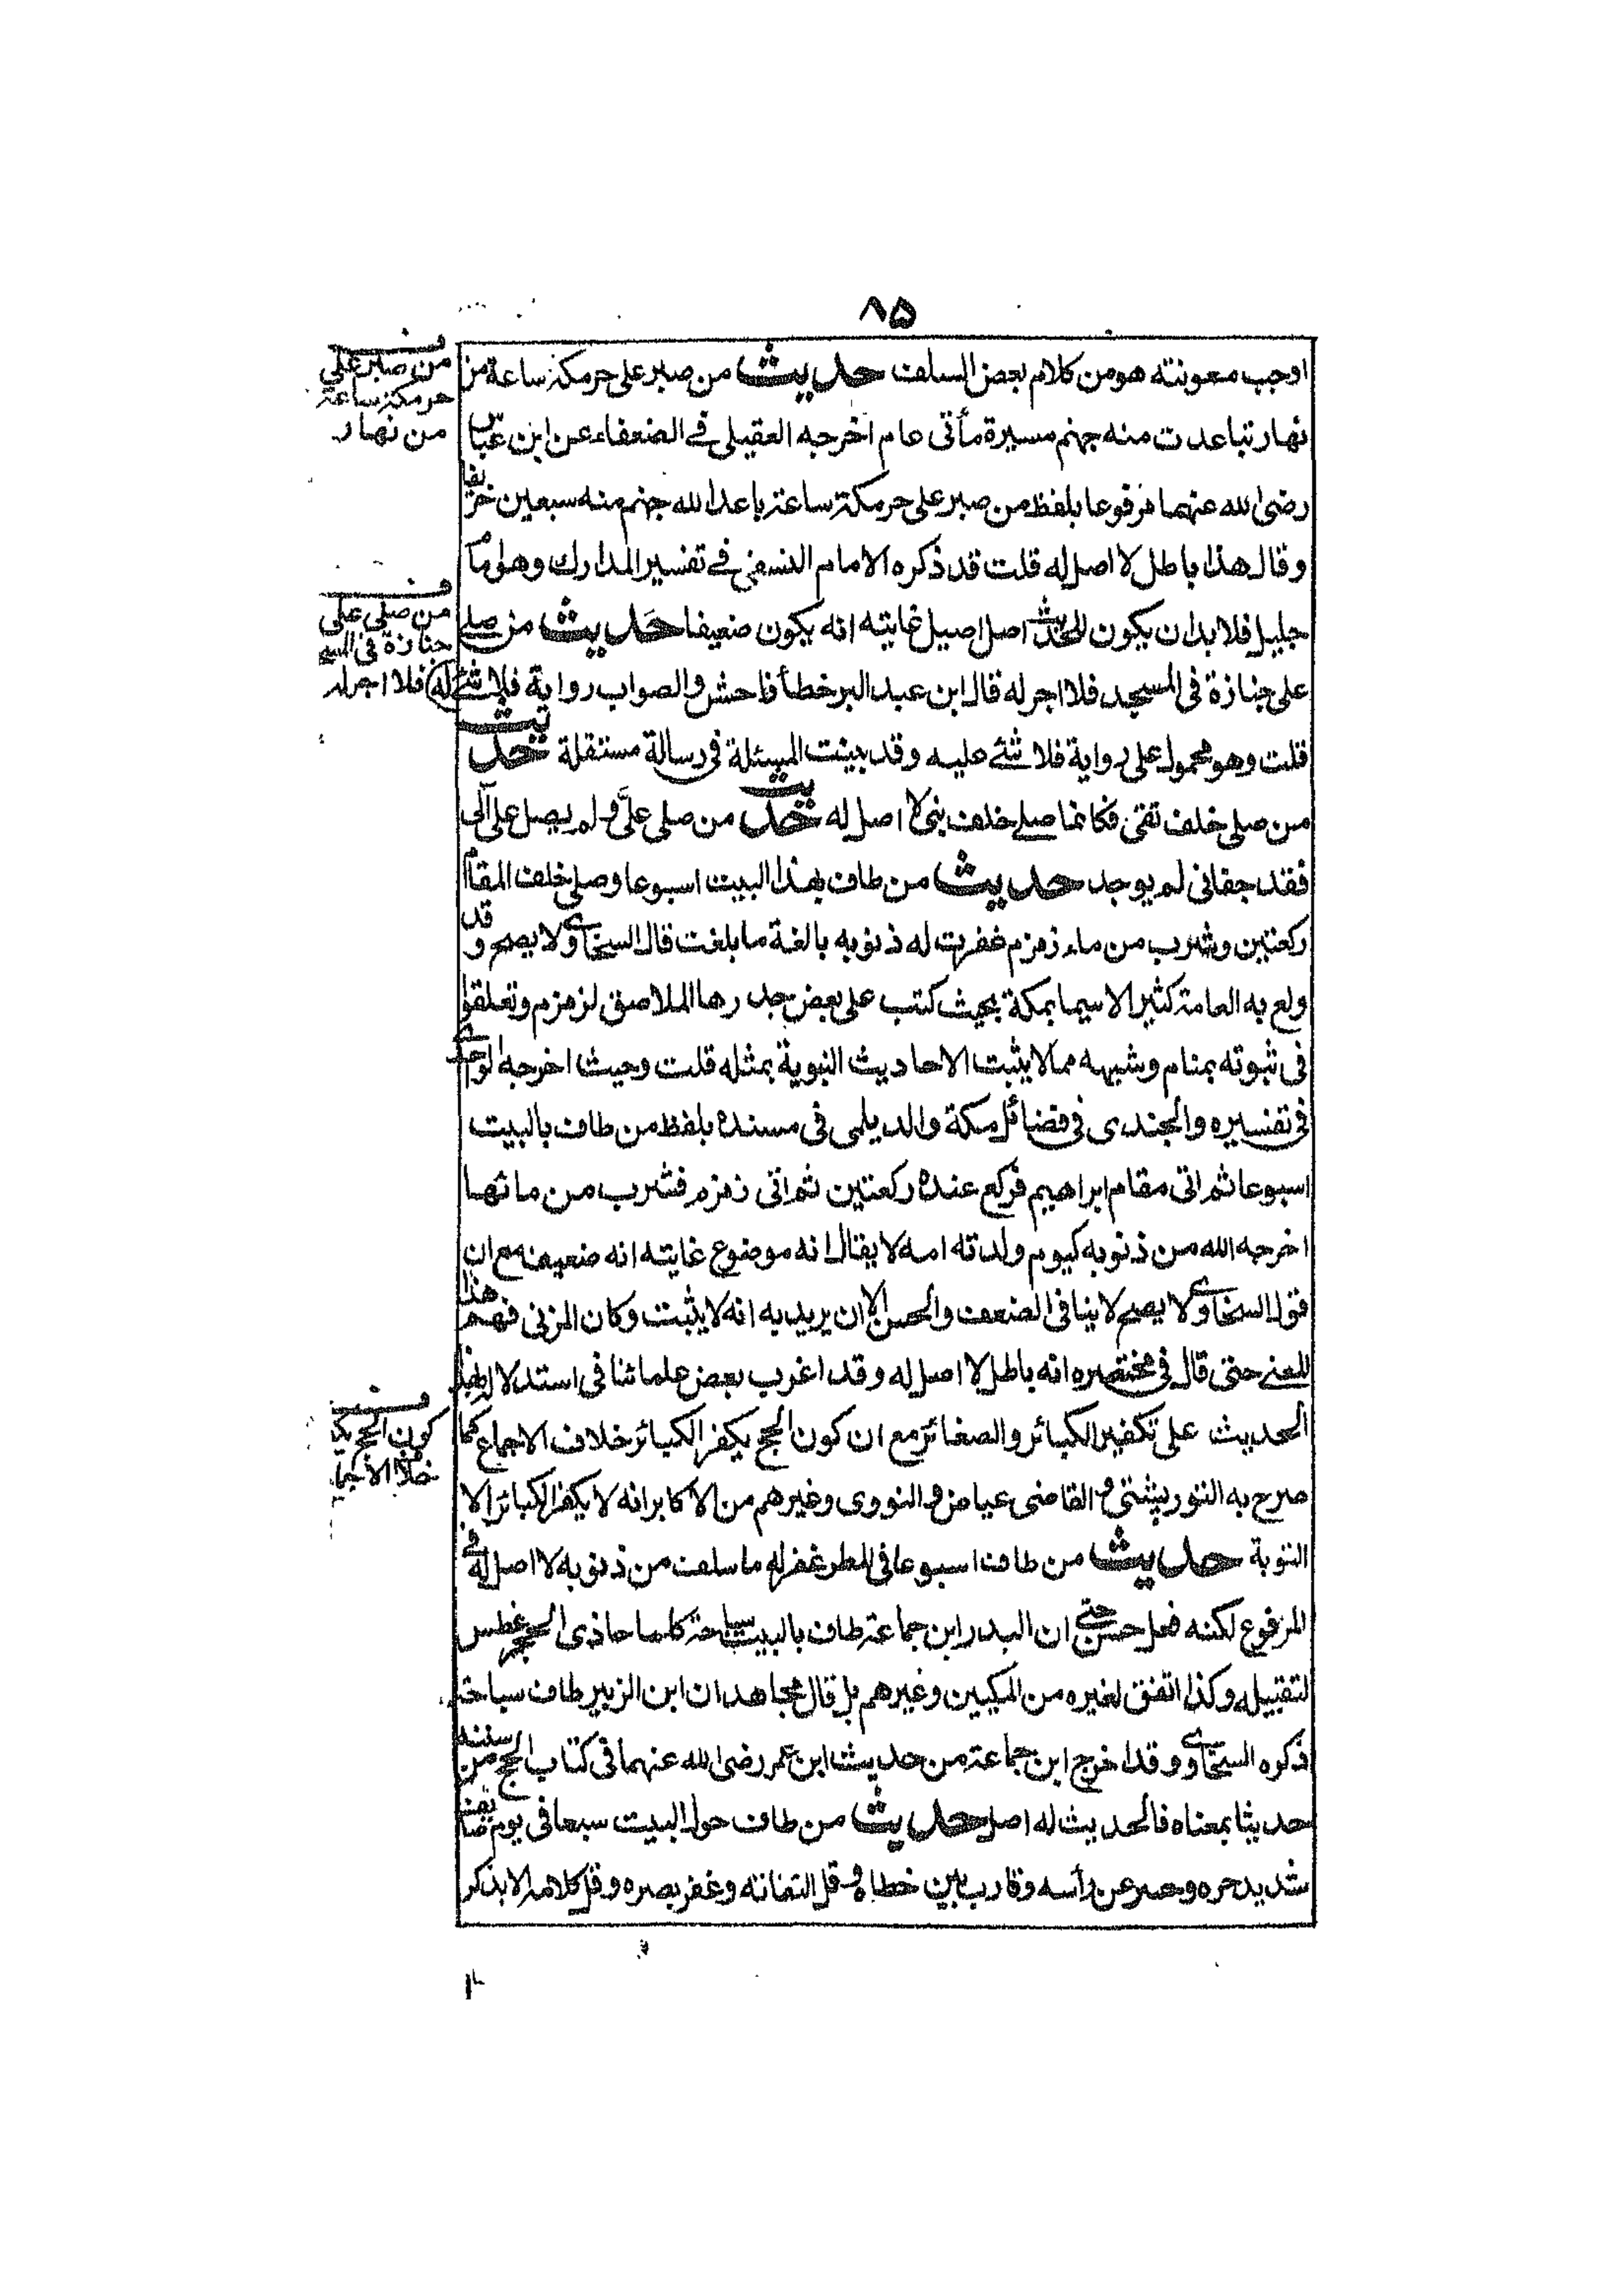 ٨۵
اوجب معونته هو من كلام بعض السلف حديث من صبر على حر مكة ساعة من
نهار تباعدت منه جهنم مسيرة مأتى عام اخرجه العقيلى فے الضعفاء عن ابن عباس
رضى الله عنهما مرفوعا بلفظ من صبر على حر مكة ساعة باعد الله جهنم منه سبعين خريفا
و قال هذا باطل لا اصل له قلت قد ذكره الامام النسفى فے تفسير المدارك وهو امام
جليل فلا بد ان يكون للحديث اصل اصيل غايته انه يكون ضعيفا حديث من صلے
على جنازة فى المسجد فلا اجر له قال ابن عبد البر خطأ فاحش والصواب رواية فلا شئے له
قلت وهو محمول على رواية فلا شئے عليه وقد بينت المسئلة فى رسالة مستقلة حديث
من صلى خلف تقى فكانما صلے خلف نبى لا اصل له حديث من صلى علىّ و لم يصل على آلى
فقد جفانى لم يوجد حديث من طاف بهذا البيت اسبوعا وصلى خلف المقام
ركعتين وشرب من ماء زمزم غفرت له ذنوبه بالغة ما بلغت قال السخاوى ولا يصح و قد
ولع به العامة كثيرا لا سيما بمكة بحيث كتب على بعض جدرها الملاصق لزمزم وتعلقوا
فى ثبوته بمنام وشبهه مما لا يثبت الاحاديث النبوية بمثله قلت وحيث اخرجه الواحدى
فى تفسيره والجندى فى فضائل مكة والديلمى فى مسنده بلفظ من طاف بالبيت
اسبوعا ثم اتى مقام ابراهيم فركع عنده ركعتين ثم اتى زمزم فشرب من مائها
اخرجه الله من ذنوبه كيوم ولدته امه لا يقال انه موضوع غايته انه ضعيف مع ان
قول السخاوى لا يصح لا ينافى الضعف والحسن الا ان يريد به انه لا يثبت وكان المزنى فهم هذا
المعنے حتى قال فى مختصره انه باطل لا اصل له وقد اغرب بعض علمائنا فى استدلاله بهذا
الحديث على تكفير الكبائر والصغائر مع ان كون الحج يكفر الكبائر خلاف الاجماع كما
صرح به التوربشتى و القاضى عياض و النووى وغيرهم من الاكابر انه لا يكفر الكبائر الا
التوبة حديث من طاف اسبوعا فى المطر غفر له ما سلف من ذنوبه لا اصل له فے
المرفوع لكنه فعل حسن حتى ان البدر ابن جماعة طاف بالبيت سباحة كلما حاذى الحجر غطس
لتقبيله وكذا اتفق لغيره من المكيين وغيرهم بل قال مجاهد ان ابن الزبير طاف سباحة
ذكره السخاوى وقد اخرج ابن جماعة من حديث ابن عمر رضى الله عنهما فى كتاب الحج من سننه
حديثا بمعناه فالحديث له اصل حديث من طاف حول البيت سبعا فى يوم صائف
شديد حره وحسر عن رأسه وقارب بين خطاه و قل التفاته وغض بصره وقل كلامه الا بذكر
من صبر على
حر مكة ساعة
من نهار
من صلى على
جنازة فى المسجد
فلا اجر له
كون الحج يكـ
خلاف الاجما